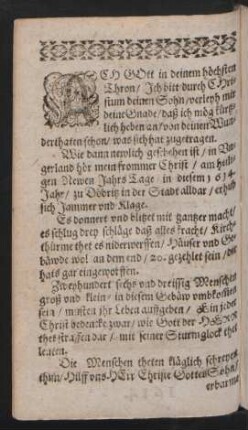 ACH GOtt in deinem höchsten
Thron/ Ich bitt durch Chri-
stum deinen Sohn/ verleyh mir
deine Gnade/ daß ich mög kürtz-
lich heben an/ von deinen Wun-
derthaten schon/ was sich hat zugetragen.
Wie dann newlich geschehen ist/ in Un-
gerland hör mein frommer Christ/ am heili-
gen Newen Jahrs Tage/ in diesem 1614.
Jahr/ zu in der Stadt alldar/ erhub
sich Jammer und Klage.
Es donnert und blitzet mit gantzer macht/
es schlug drey schläge daß alles kracht/ Kirch-
thürme thet es niderwerffen/ Häuser und Ge-
bäwde wol an dem end/ 20. gezehlet sein/ die
hats gar eingeworffen.
Zweyhundert sechs und dreissig Menschen
groß und klein/ in diesem Gebäw umbkommen
sein/ musten jhr Leben auffgeben/ Ein jeder
Christ bedencke zwar/ wie Gott der HERR
thet straffen dar/ mit seiner Sturmglock thet
leuten.
Die Menschen theten kläglich schreyen
thun/ Hülff uns HErr Christe Gottes Sohn/
erbarm